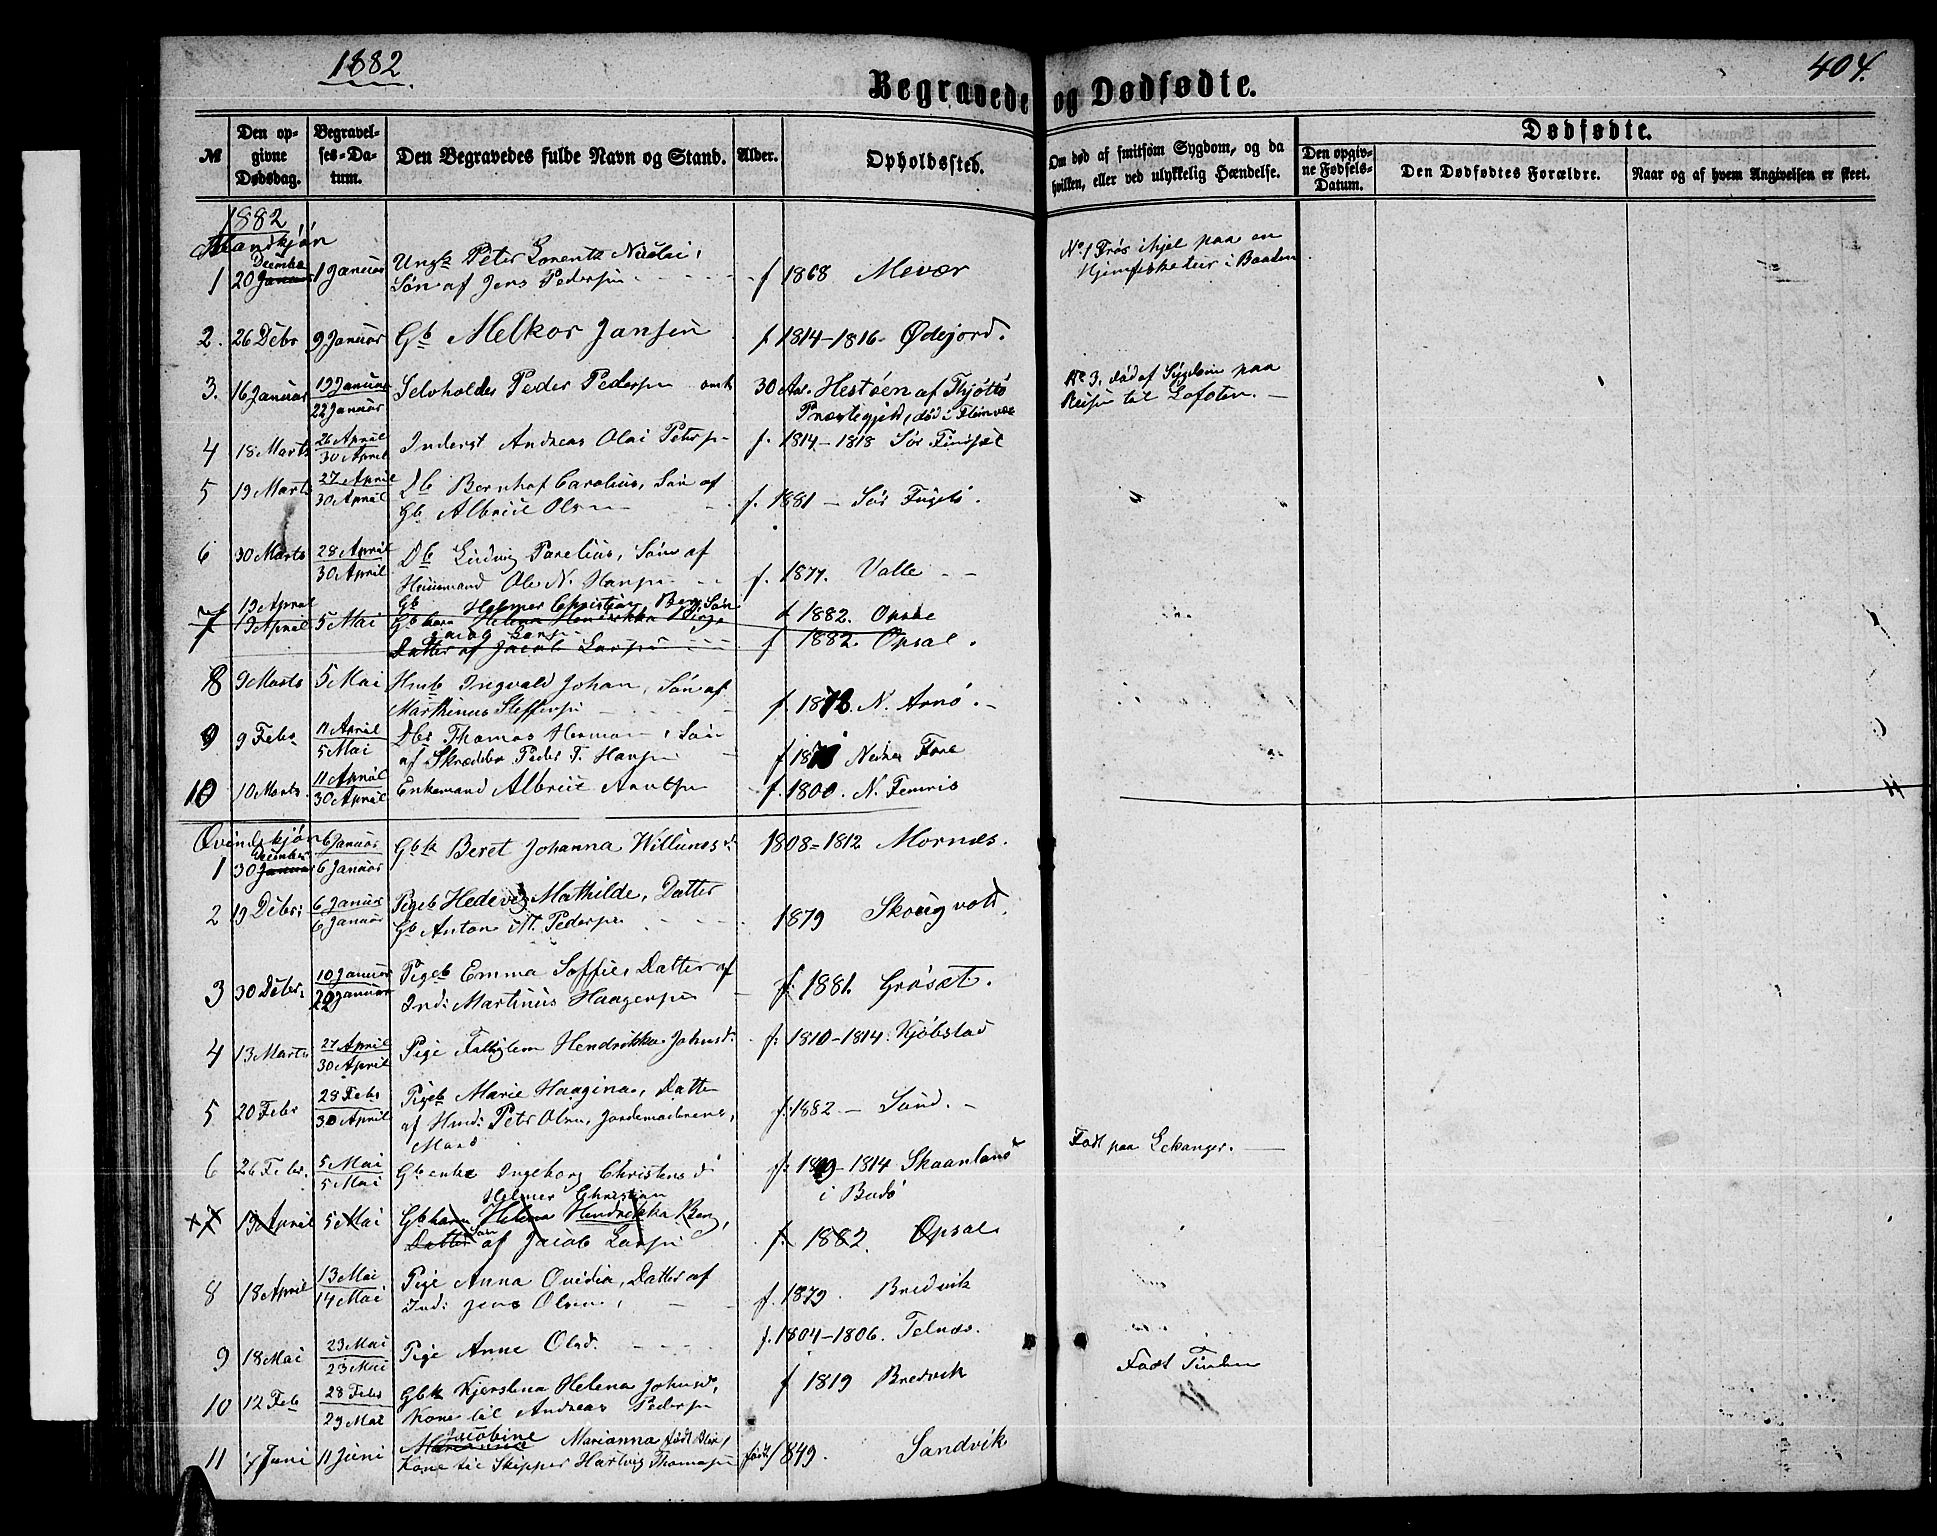 1882
404.
Begravede og Dødfødte.
№
Den opgivne Dødsdag.
Begravelses-Datum.
Den Begravedes fulde Navn og Stand.
Alder.
Opholdssted.
Om død af smitsom Sygdom, og da hvilken, eller ved ulykkelig Hændelse.
Dødfødte.
Den opgivne Fødsels-Datum.
Den Dødfødtes Forældre.
Naar og af hvem Angivelsen er skeet.
1882
Mandkjøn
1 20 Decembr Januar 1 Januar Ungk Peter Lorentz Nicolai, f 1868 Mevær No 1 Frøs ihjel paa en
Søn af Jens Pedersen Hjemfisketur i Baaden
2. 26 Debr 9 Januar Gb Melkor Jansen f 1814-1816 Ødejord.
3. 16 Januar 19 Januar 22 Januar Selvholdes Peder Pedersen omtr 30 Aar. Hestøen af Thjøttø No 3, død af Sygdom paa
Præstegjeld, død i Reisen til Lofoten.
4 18 Marts 26 April 30 April Inderst Andreas Olai Petersen f. 1814-1818 Sør
5 19 Marts 27 April 30 April Db Bernhof Carolius, Søn af
Gb Albrit Olsen f. 1881 - Sør Fugelø.
6 30 Marts 28 April 30 April Db Ludvig Parelius, Søn af
Huusmand Ole N. Hansen f. 1877. Valle
19 April Gb Helmer Christian Berg, Søn f 1882.
7 19 April 5 Mai Gb barn Helena Hendrikka Berg
af Jacob Larsen
Datter af Jacob Larsen f 1882 Opsal.
8 9 Marts 5 Mai Hmb Ingvald Johan, Søn af
Marthinus Steffensen f. 1878. N. Arnø.
9 9 Febr 11 April 5 Mai Db Thomas Herman, Søn
af Skrædder Peder T. Hansen f 18 Nedre Fore
10 10 Marts 11 April 30 April Enkemand Albrit Arntsen f. 1800. N. Femris
Qvindekjøn
1 30 December Januar 6 Januar 6 Januar Gbk Beret Johanna Willumsd. 1808-1812 Mornæs.
2 19 Debr. 6 Januar 6 Januar Pigeb Hedevig Mathilde, Datter
Gb Anton M. Pedersen 1879 Skougvold.
3 30 Debr. 10 Januar 22 Januar Pigeb Emma Soffie, Datter af
Ind: Martinus Haagensen f. 1881. Grøsæt.
4 13 Marts 27 April 30 April Pige Fattiglem Hendrikka Johnsd: f. 1810-1814. Kjøbstad
5 20 Febr 28 Febr 30 April Pigeb Marie Haagina, Datter
af Hmd: Petr Olsen, Jordemoderens, f. 1882 - Sund.
Mand
6 26 Febr. 5 Mai 5 Mai Gb enke Ingeborg Christensd f. 1809-1814 Skaanland Født paa Lekanger.
i Bodø
Helmer Christian
7 19 April 5 Mai Gb barn Helena Hendrikka Berg,
Datter Søn af Jacob Larsen f. 1882. Opsal
8 18 April 13 Mai 14 Mai Pige Anna Ovidia, Datter af
Ind: Jens Olsen, f. 1879. Bredvik
9 18 Mai 23 Mai 23 Mai Pige Anne Olsd. f. 1804-1806. Telnæs.
10 12 Feb 28 Febr 29 Mai Gbk Kjerstina Helena Johnsd, f 1819 Bredvik Født
Kone til Andreas Pedersen
11 7 Juni 11 Juni Marianna Jacobine Marianna født Blix,
Kone til Skipper Hartvig Thomassen født 1849. Sandvik